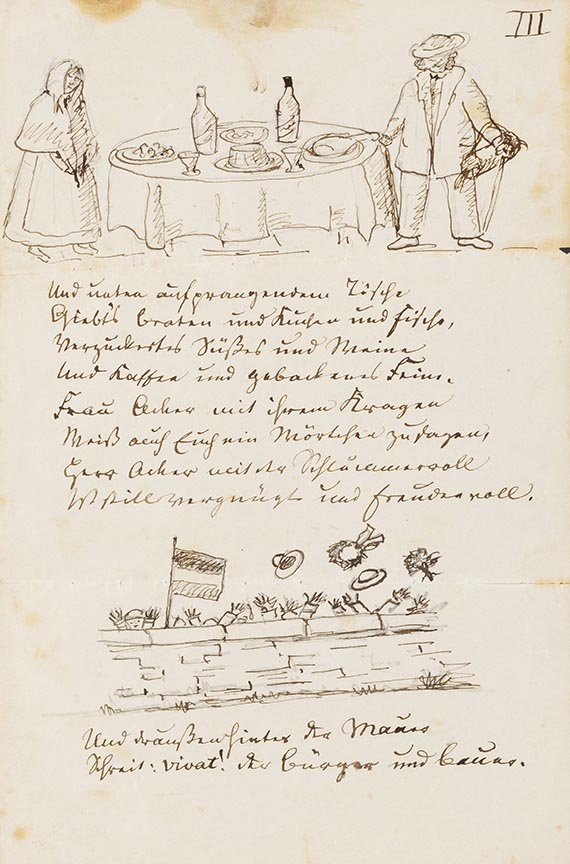 III
Und unten auf prangendem Tische
Giebt's braten und Kuchen und Fische,
Verzuckertes Süßes und Weine
Und Kaffee und gebackenes Feine.
Frau Acker mit ihrem Kragen
Weiß auch Euch ein Wörtchen zu sagen,
Herr Acker mit der Schlummerroll
Ist still vergnügt und freudevoll.
Und draußen hinter der Mauer
Schreit: vivat! der bürger und bauer.